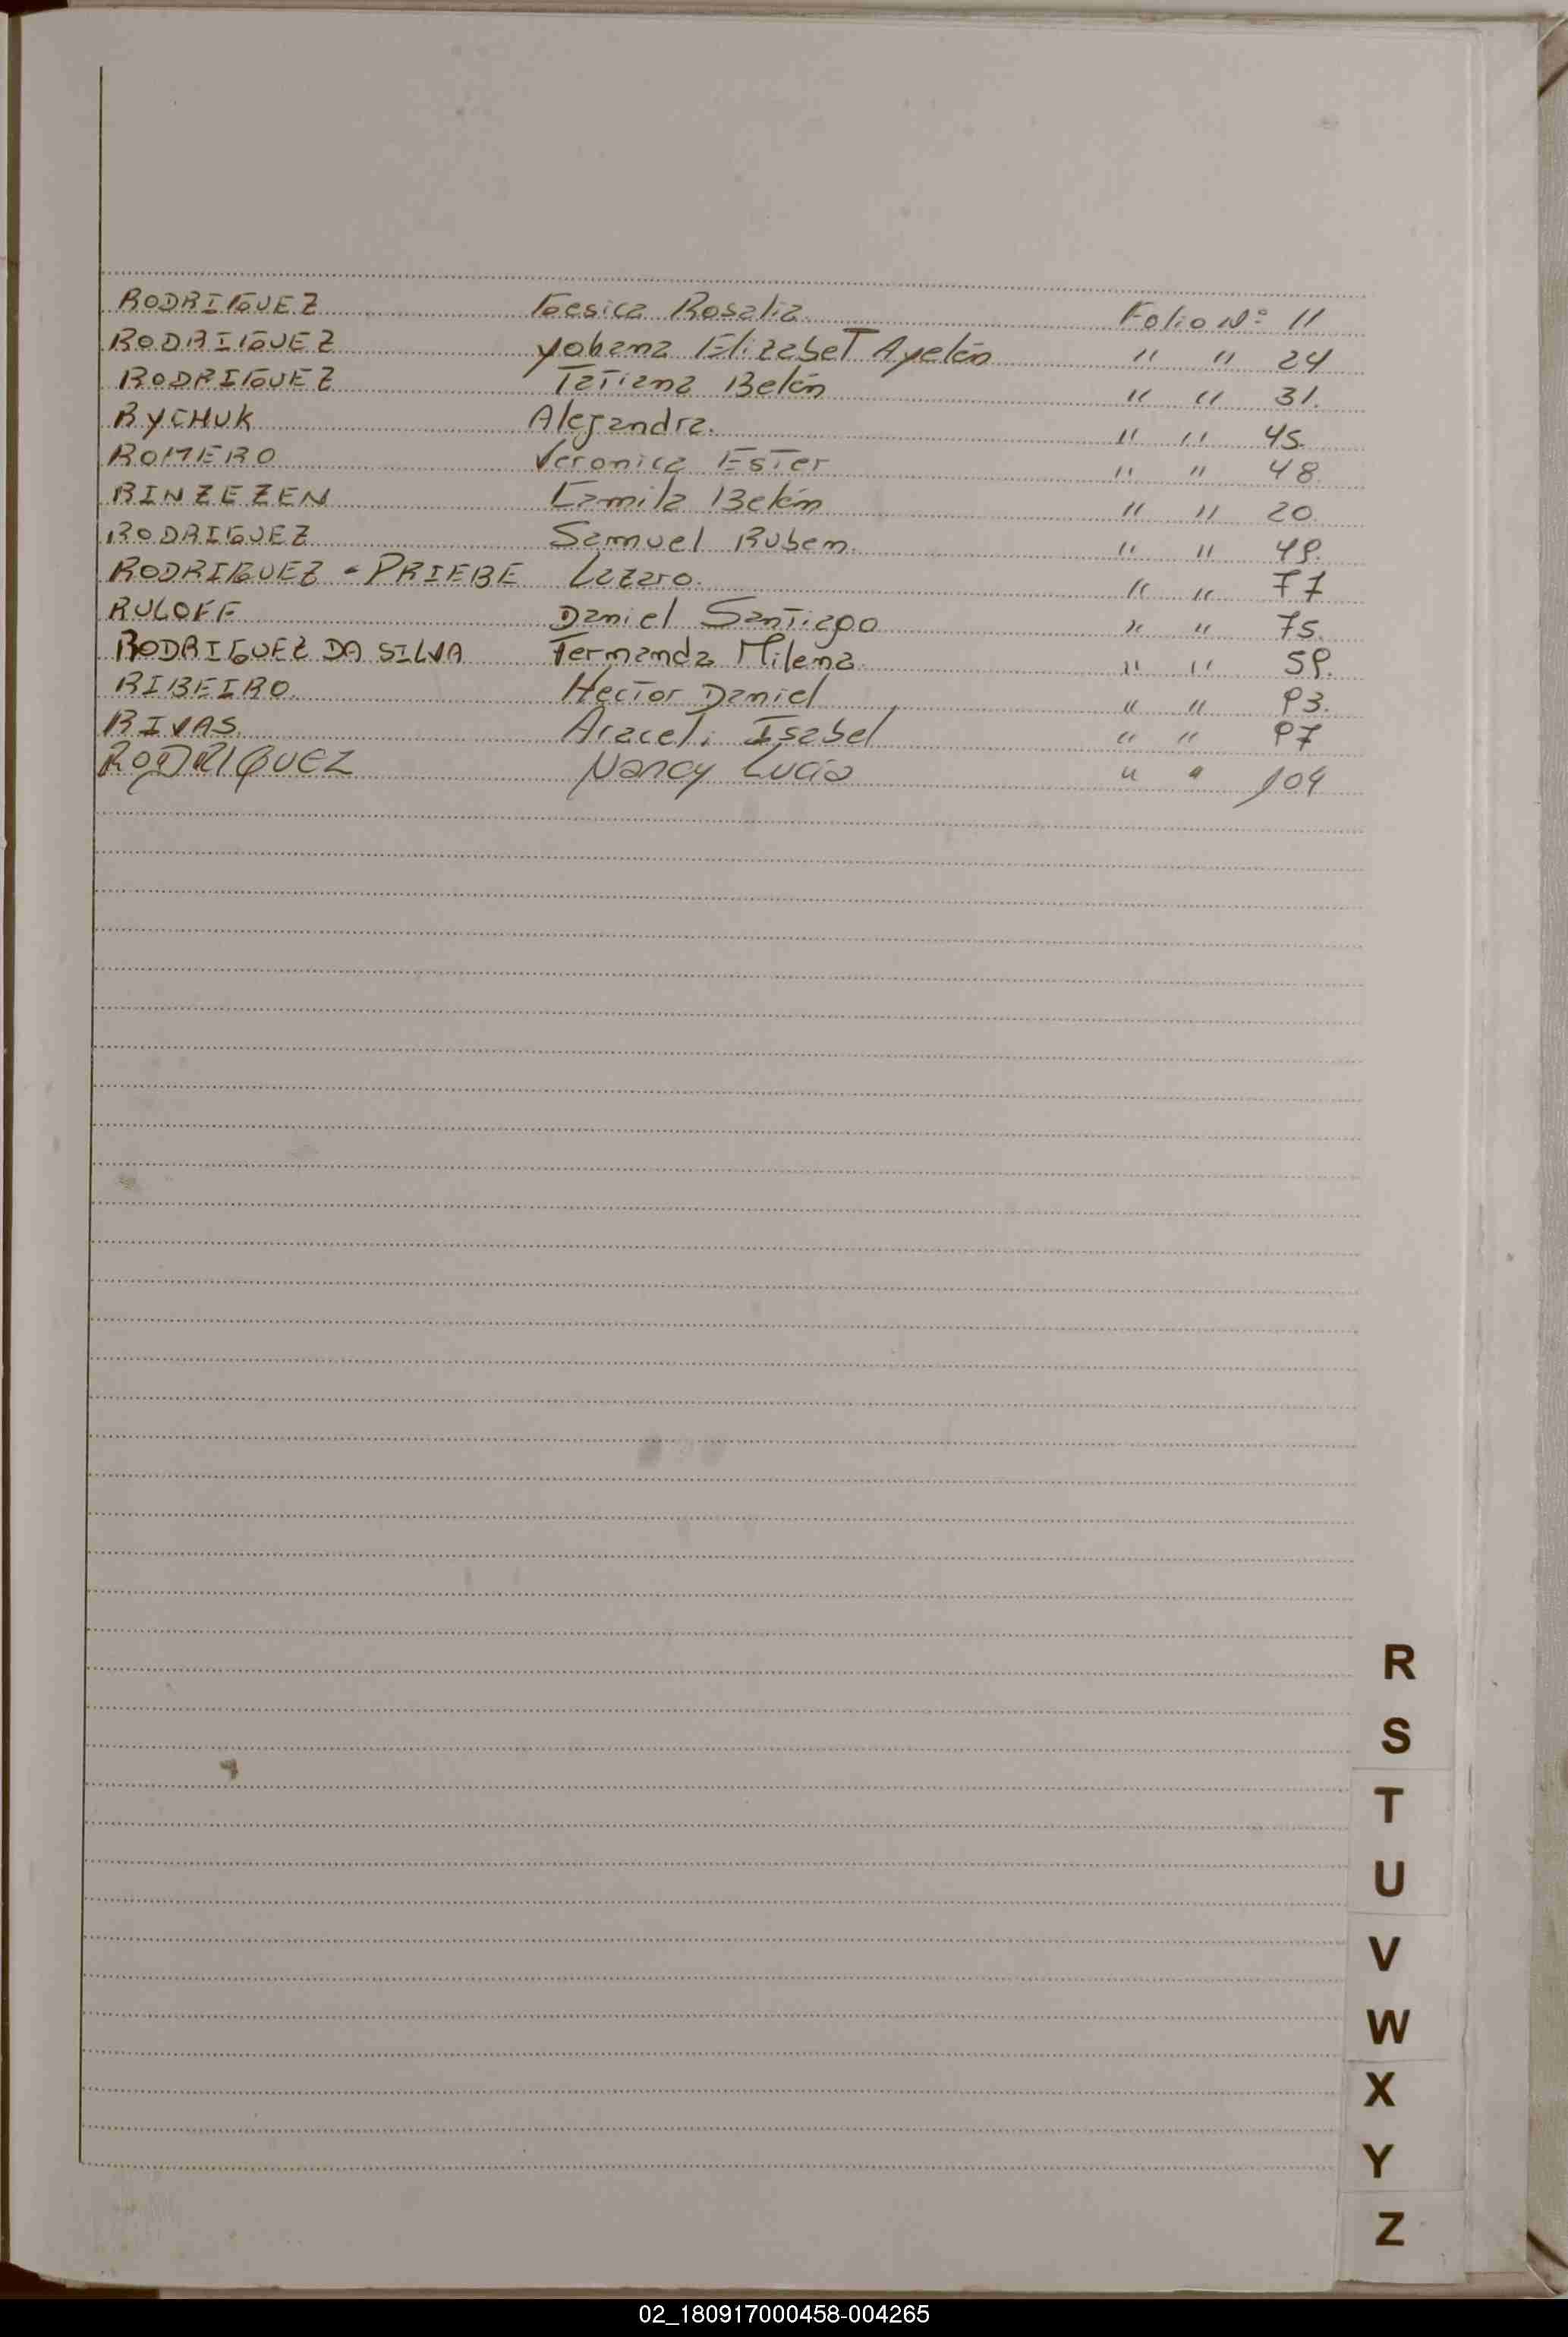 RODRIGUEZ Gesica Rosalia Folio Nº 11
RODRIGUEZ Yohana Elizabet Ayelén " " 24
RODRIGUEZ Tatiana Belén " " 31.
RYCHUK Alejandra. " " 45.
ROMERO Veronica Ester " " 48.
RINZEZEN Camila Belén " " 20.
RODRIGUEZ Samuel Ruben. " " 49.
RODRIGUEZ - PRIEBE Lazaro. " " 77
RULOFF Daniel Santiago " " 75.
RODRIGUEZ DA SILVA Fernanda Milena. " " 59.
RIBEIRO. Hector Daniel " " 93.
RIVAS. Araceli Isabel " " 97
RODRIGUEZ Nancy Lucia " " 104
R
S
T
U
V
W
X
Y
Z
02_180917000458-004265